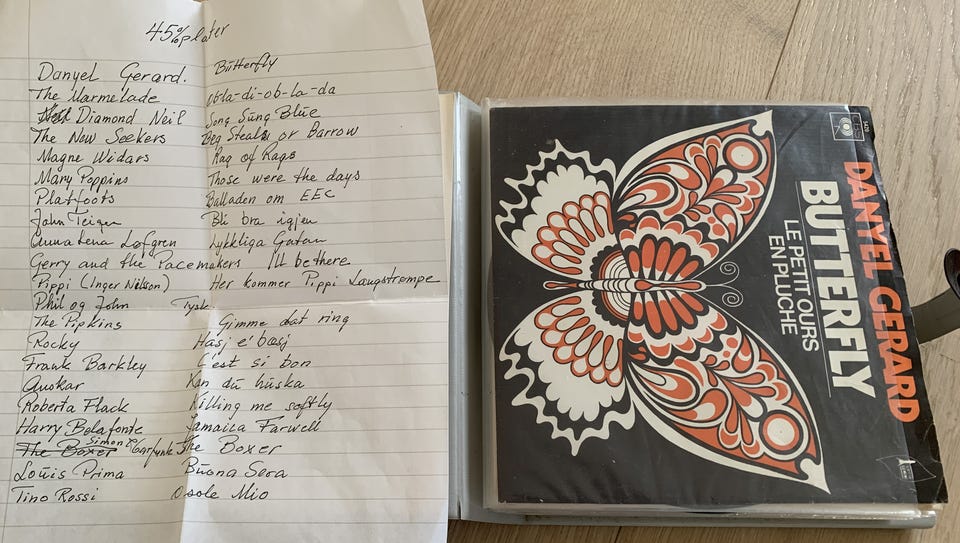 45% plater
Danyel Gerard. Butterfly
The Marmelade ob-la-di-ob-la-da
Diamond Neil Song Sung Blue
The New Seekers Beg Steal or Barrow
Magne Widars Rag of Rags
Mary Poppins Those were the days
Platfoots Balladen om EEC
John Teigen Bli bra igjen
Anna Lena Løfgren Lykkliga Gatan
Gerry and the Pacemakers I'll be there
Pippi (Inger Nilsson) Her kommer Pippi Langstrømpe
Phil og John Tysk
The Pipkins Gimme dat ring
Rocky Hasj e' bæsj
Frank Barkley C'est si bon
Anokar Kan du huska
Roberta Flack Killing me softly
Harry Belafonte Jamaica Farwell
The Boxer Simon & Garfunk The Boxer
Louis Prima Buona Sera
Tino Rossi O sole Mio
DANYEL GERARD
BUTTERFLY
LE PETIT OURS
EN PLUCHE
CBS